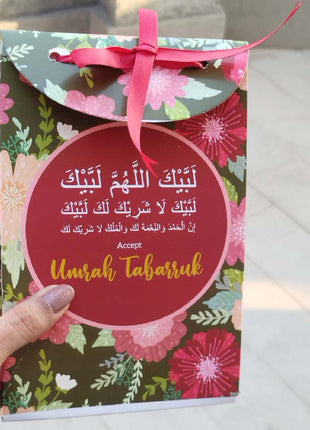 لَبَّيْكَ اللَّهُمَّ لَبَّيْكَ
لَبَّيْكَ لَا شَرِيْكَ لَكَ لَبَّيْكَ
إِنَّ الْحَمْدَ وَالنِّعْمَةَ لَكَ وَالْمُلْكَ لَا شَرِيْكَ لَكَ
Accept
Umrah Tabarruk